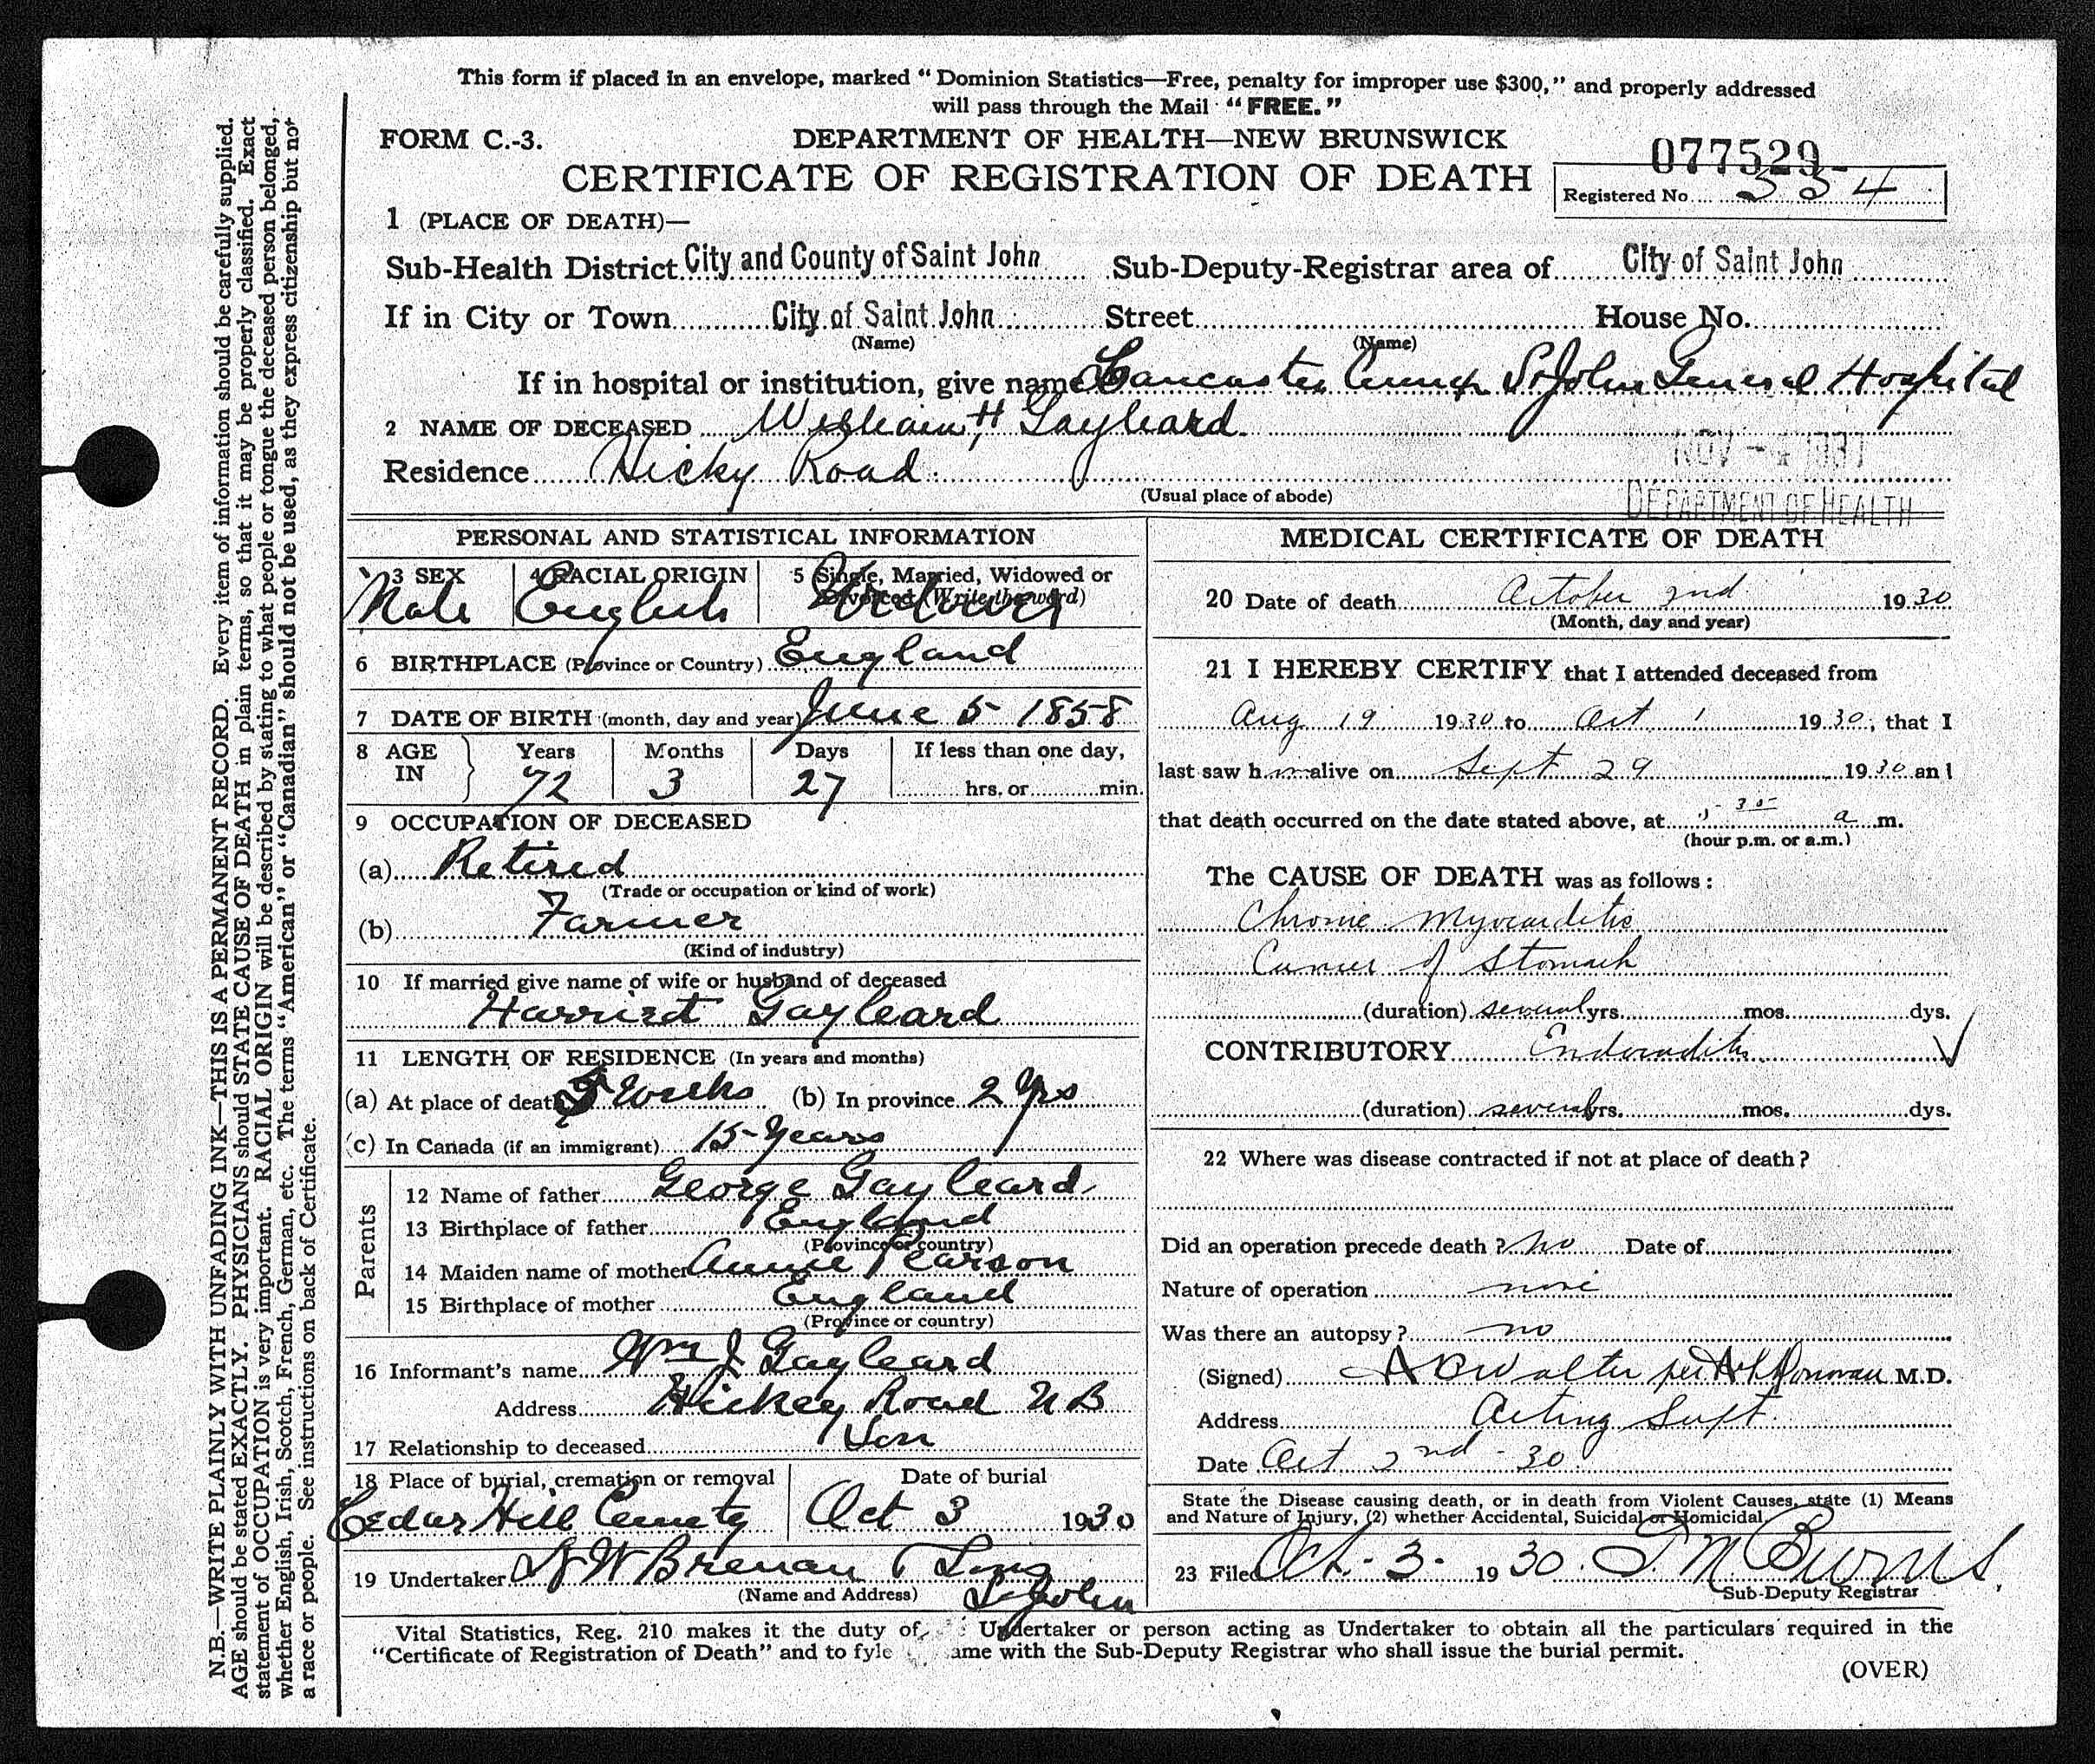 This form if placed in an envelope, marked “Dominion Statistics—Free, penalty for improper use $300,” and properly addressed
will pass through the Mail “FREE.”
FORM C.-3. DEPARTMENT OF HEALTH—NEW BRUNSWICK
077529
CERTIFICATE OF REGISTRATION OF DEATH
Registered No. 334
1 (PLACE OF DEATH)—
Sub-Health District City and County of Saint John Sub-Deputy-Registrar area of City of Saint John
If in City or Town City of Saint John Street House No.
(Name) (Name)
If in hospital or institution, give name Lancaster St John General Hospital
2 NAME OF DECEASED William H Gayleard
NOV - 1930
Residence Hicky Road
(Usual place of abode)
DEPARTMENT OF HEALTH
PERSONAL AND STATISTICAL INFORMATION
3 SEX 4 RACIAL ORIGIN 5 Single, Married, Widowed or
Divorced (Write the word)
Male English Widower
6 BIRTHPLACE (Province or Country) England
7 DATE OF BIRTH (month, day and year) June 5 1858
8 AGE Years Months Days If less than one day,
IN 72 3 27 hrs. or min.
9 OCCUPATION OF DECEASED
(a) Retired
(Trade or occupation or kind of work)
(b) Farmer
(Kind of industry)
10 If married give name of wife or husband of deceased
Harriet Gayleard
11 LENGTH OF RESIDENCE (In years and months)
(a) At place of death Weeks (b) In province 2 Yrs
(c) In Canada (if an immigrant) 15 Years
Parents
12 Name of father George Gayleard
13 Birthplace of father England
(Province or country)
14 Maiden name of mother Annie Pearson
15 Birthplace of mother England
(Province or country)
16 Informant's name Wm J Gayleard
Address Hickey Road N B
17 Relationship to deceased Son
18 Place of burial, cremation or removal Date of burial
Cedar Hill Cemety Oct 3 1930
19 Undertaker N W Brenan & Sons
(Name and Address) St John
MEDICAL CERTIFICATE OF DEATH
20 Date of death October 2nd 1930
(Month, day and year)
21 I HEREBY CERTIFY that I attended deceased from
Aug 19 1930 to Oct 1 1930, that I
last saw h im alive on Sept 29 1930 and
that death occurred on the date stated above, at a m.
(hour p.m. or a.m.)
The CAUSE OF DEATH was as follows:
Chronic Myocarditis
Cancer of Stomach
(duration) several yrs. mos. dys.
CONTRIBUTORY Endocarditis
(duration) several yrs. mos. dys.
22 Where was disease contracted if not at place of death?
Did an operation precede death? No Date of
Nature of operation none
Was there an autopsy? no
(Signed) Walter per M.D.
Address Acting Supt.
Date Oct 2nd - 30
State the Disease causing death, or in death from Violent Causes, state (1) Means
and Nature of Injury, (2) whether Accidental, Suicidal or Homicidal.
23 Filed Oct. 3. 1930. Burns.
Sub-Deputy Registrar
Vital Statistics, Reg. 210 makes it the duty of Undertaker or person acting as Undertaker to obtain all the particulars required in the
“Certificate of Registration of Death” and to fyle ame with the Sub-Deputy Registrar who shall issue the burial permit.
(OVER)
N.B.—WRITE PLAINLY WITH UNFADING INK—THIS IS A PERMANENT RECORD. Every item of information should be carefully supplied.
AGE should be stated EXACTLY. PHYSICIANS should STATE CAUSE OF DEATH in plain terms, so that it may be properly classified. Exact
statement of OCCUPATION is very important. RACIAL ORIGIN will be described by stating to what people or tongue the deceased person belonged,
whether English, Irish, Scotch, French, German, etc. The terms “American” or “Canadian” should not be used, as they express citizenship but not
a race or people. See instructions on back of Certificate.